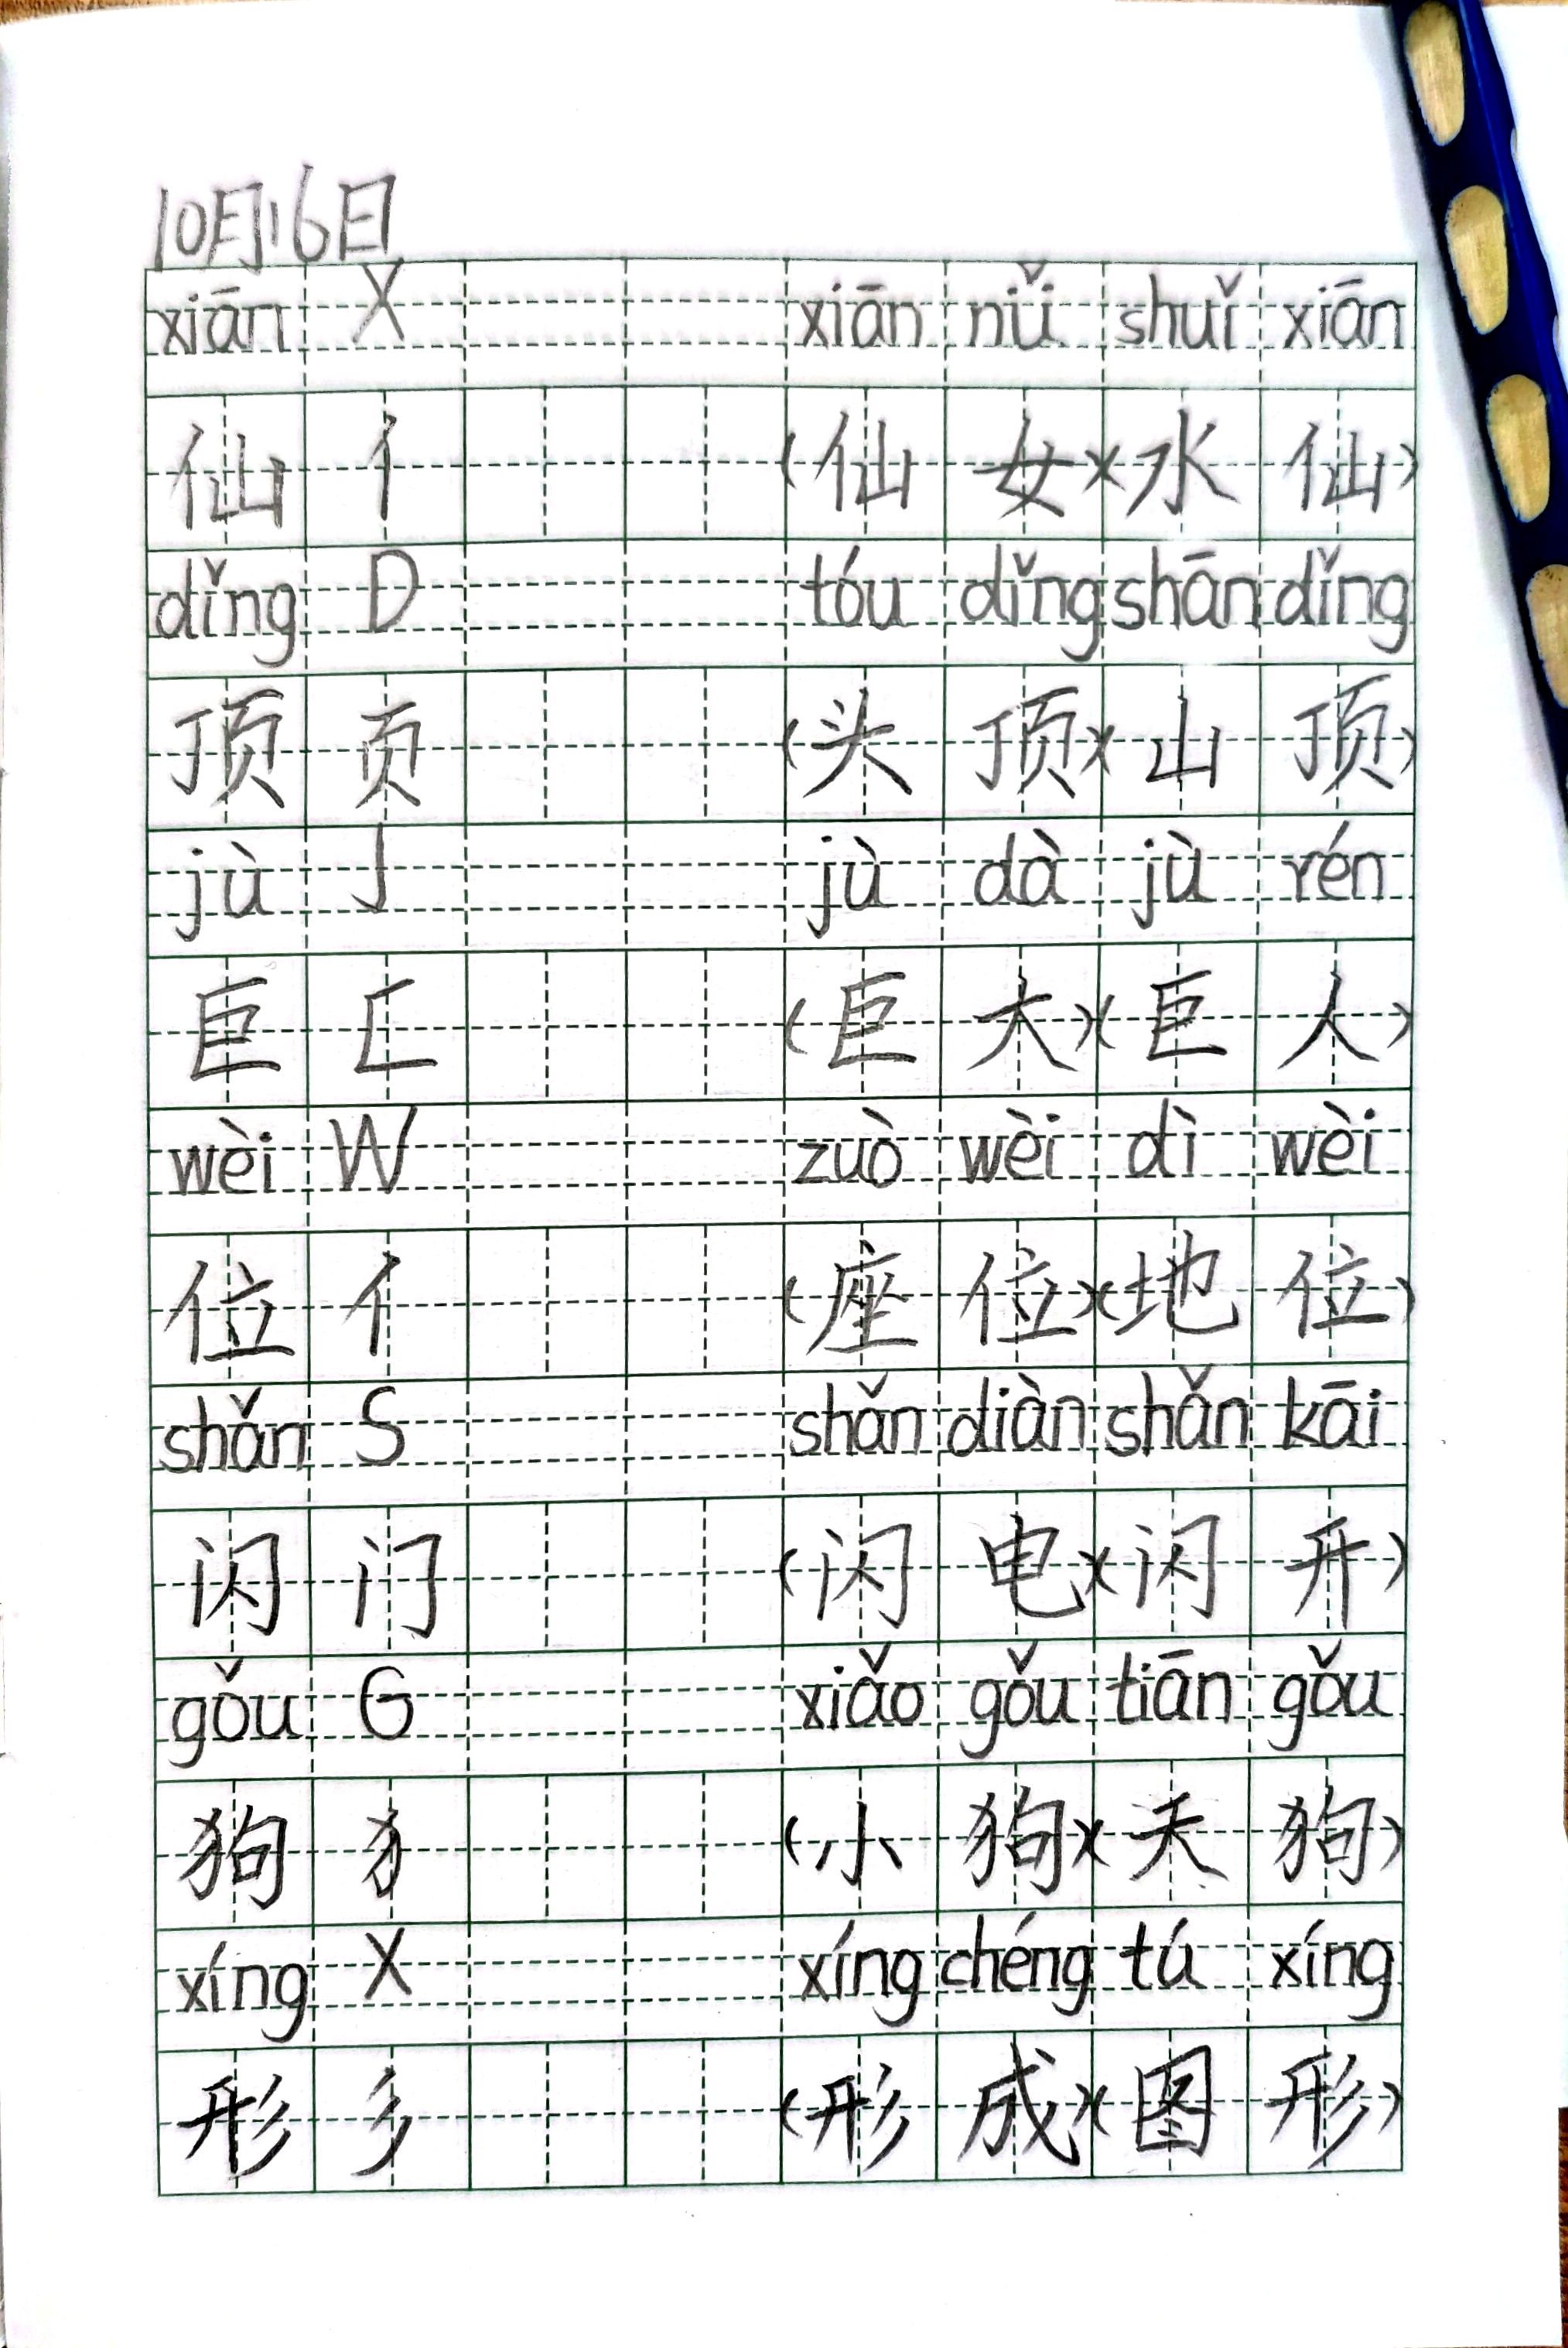 10月16日
xiān X xiān nǚ shuǐ xiān
仙 亻 (仙 女)(水 仙)
dǐng D tóu dǐng shān dǐng
顶 页 (头 顶)(山 顶)
jù J jù dà jù rén
巨 匚 (巨 大)(巨 人)
wèi W zuò wèi dì wèi
位 亻 (座 位)(地 位)
shǎn S shǎn diàn shǎn kāi
闪 门 (闪 电)(闪 开)
gǒu G xiǎo gǒu tiān gǒu
狗 犭 (小 狗)(天 狗)
xíng X xíng chéng tú xíng
形 彡 (形 成)(图 形)